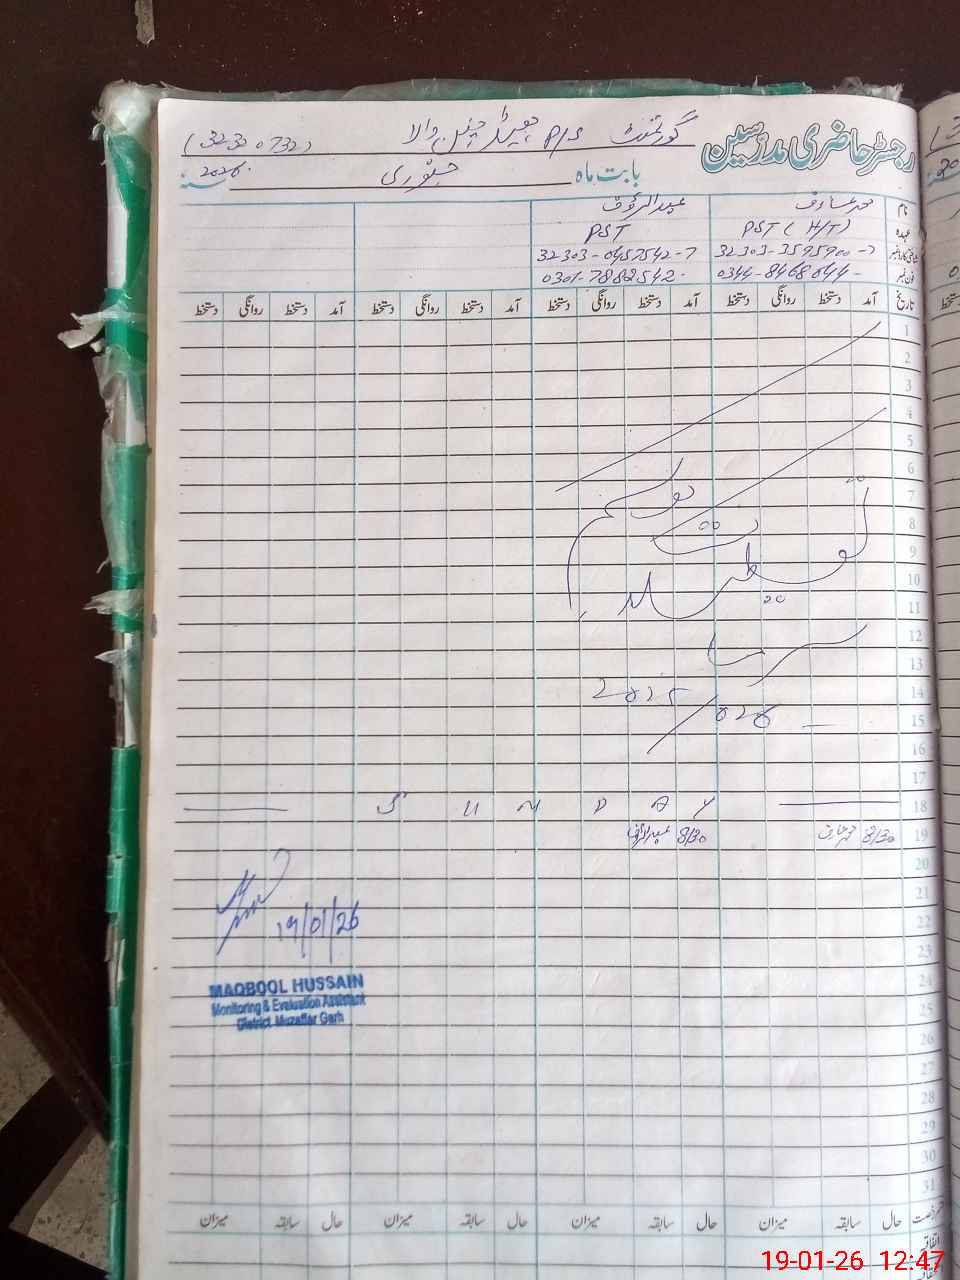 رجسٹر حاضری مدرسین گورنمنٹ P/S والا (32320732)
بابت ماہ جنوری سنہ 2026
نام محمد عبدالرؤف
عہدہ PST (H/T) PST
شناختی کارڈ نمبر 32303-3595900-7 32303-0457542-7
فون نمبر 0344-8468644 0301-7882542
تاریخ آمد دستخط روانگی دستخط آمد دستخط روانگی دستخط آمد دستخط روانگی دستخط آمد دستخط روانگی دستخط
1
2
3
4
5
6
7
موسم
8
9
تعطیلات
10
11
12
سرما
13
14
2025
15
/2026
16
17
18 S U N D A Y
19 8/30 8/30 عبدالرؤف
20
21
22
19/01/26
23
24
MAQBOOL HUSSAIN
25
Monitoring & Evaluation Assistant
District Muzaffar Garh
26
27
28
29
30
31
حال سابقہ میزان حال سابقہ میزان حال سابقہ میزان حال سابقہ میزان
اتفاقیہ
19-01-26 12:47